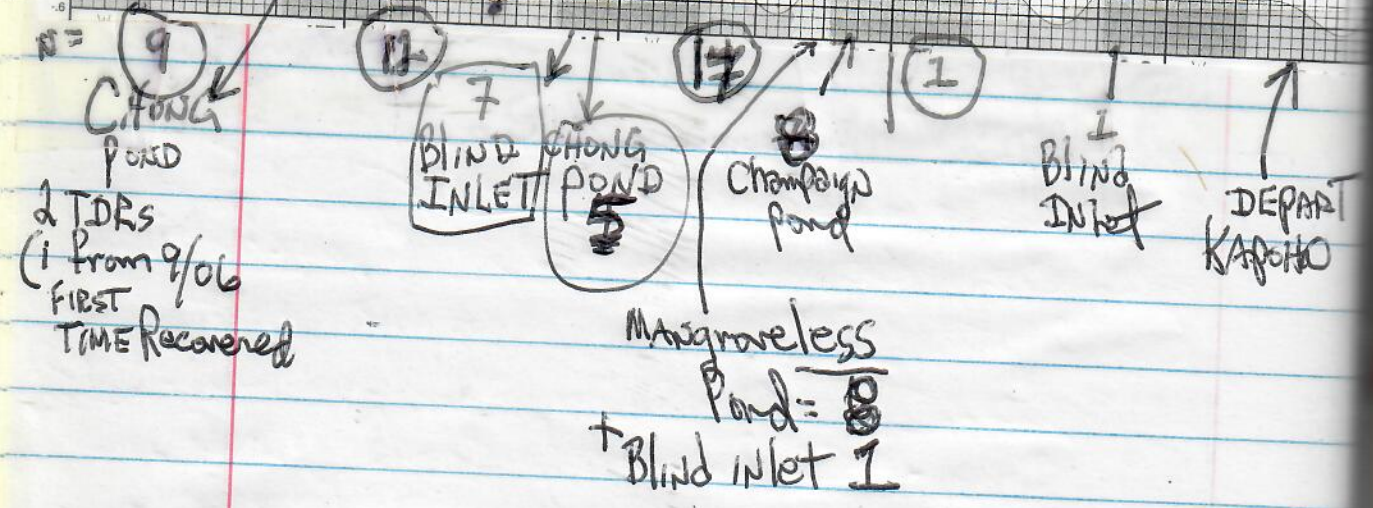 -.6
N = 9 12 17 1
CHONG
POND
2 TDRs
(1 from 9/06
FIRST
TIME Recovered
7
BLIND
INLET
CHONG
POND
5
8
Champaign
Pond
1
Blind
INlet
DEPART
KAPOHO
MANgroveless
Pond = 8
+ Blind inlet 1